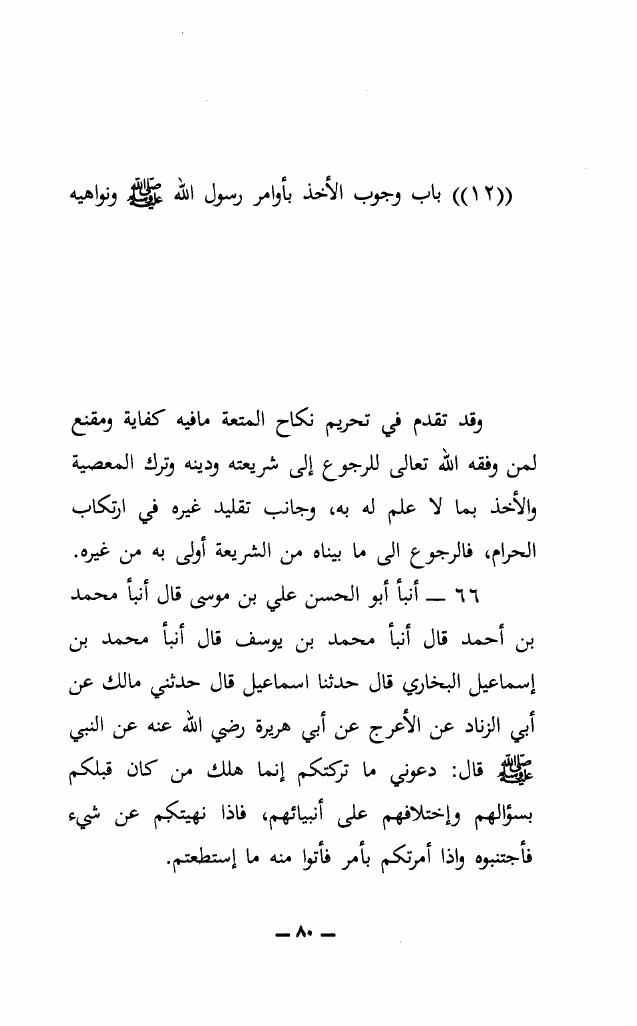 ((١٢)) باب وجوب الأخذ بأوامر رسول الله ﷺ ونواهيه
وقد تقدم في تحريم نكاح المتعة مافيه كفاية ومقنع
لمن وفقه الله تعالى للرجوع إلى شريعته ودينه وترك المعصية
والأخذ بما لا علم له به، وجانب تقليد غيره في ارتكاب
الحرام، فالرجوع الى ما بيناه من الشريعة أولى به من غيره.
٦٦ ــ أنبأ أبو الحسن علي بن موسى قال أنبأ محمد
بن أحمد قال أنبأ محمد بن يوسف قال أنبأ محمد بن
إسماعيل البخاري قال حدثنا اسماعيل قال حدثني مالك عن
أبي الزناد عن الأعرج عن أبي هريرة رضي الله عنه عن النبي
ﷺ قال: دعوني ما تركتكم إنما هلك من كان قبلكم
بسؤالهم وإختلافهم على أنبيائهم، فاذا نهيتكم عن شيء
فأجتنبوه واذا أمرتكم بأمر فأتوا منه ما إستطعتم.
ــ ٨٠ ــ